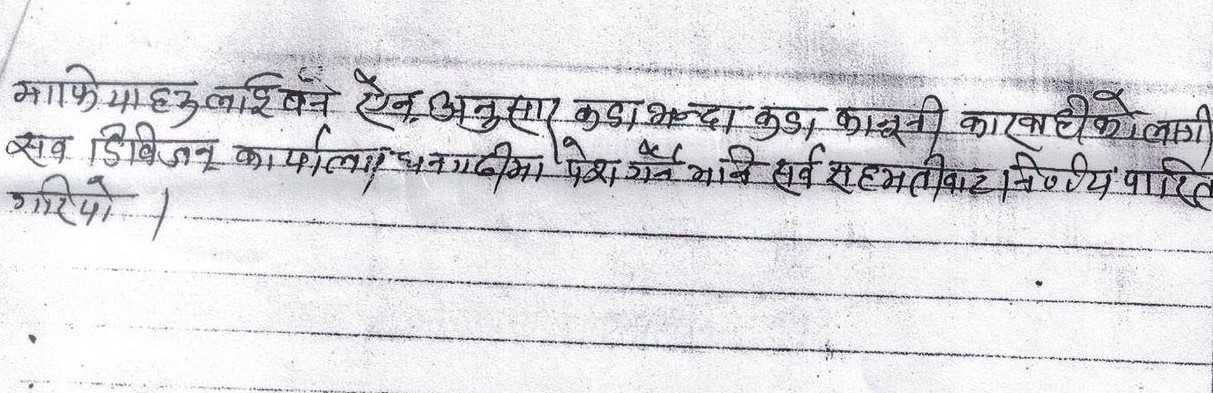 माफियाहरुलाई वन ऐन अनुसार कडा भन्दा कडा कानूनी कारवाहीको लागी
सव डिविजन कार्यालय धनगढीमा पेश गर्ने भनि सर्व सहमतीवाट निर्णय पारित
गरियो ।